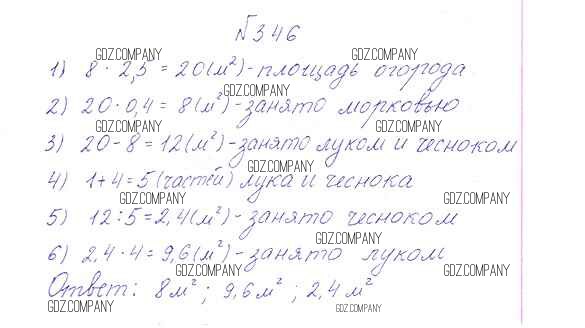 №346
GDZ.COMPANY GDZ.COMPANY
1) 8 · 2,5 = 20 (м²) - площадь огорода
GDZ.COMPANY
2) 20 · 0,4 = 8 (м²) - занято морковью
GDZ.COMPANY GDZ.COMPANY
3) 20 - 8 = 12 (м²) - занято луком и чесноком
GDZ.COMPANY
4) 1 + 4 = 5 (частей) лука и чеснока
GDZ.COMPANY GDZ.COMPANY
5) 12 : 5 = 2,4 (м²) - занято чесноком
GDZ.COMPANY
6) 2,4 · 4 = 9,6 (м²) - занято луком
GDZ.COMPANY GDZ.COMPANY
Ответ: 8 м²; 9,6 м²; 2,4 м²
GDZ.COMPANY GDZ.COMPANY